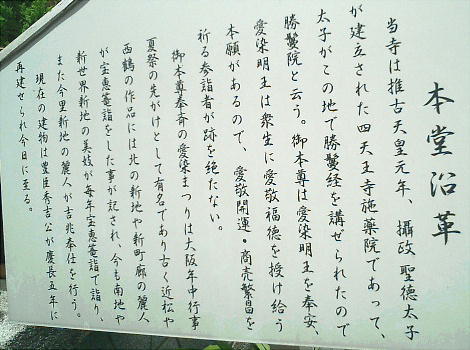 本堂沿革
当寺は推古天皇元年　攝政 聖徳太子
が建立された四天王寺施薬院であって、
太子がこの地で勝鬘経を講ぜられたので
勝鬘院と云う。御本尊は愛染明王を奉安、
愛染明王は衆生に愛敬福徳を授け給う
本願があるので、愛敬開運・商売繁昌を
祈る参詣者が跡を絶たない。
御本尊奉斉の愛染まつりは大阪年中行事
夏祭の先がけとして有名であり古く近松や
西鶴の作品には北の新地や新町廓の麗人
が宝恵篭詣をした事が記され、今も南地や
新世界新地の美妓が毎年宝恵篭詣で詣り、
また今里新地の麗人が吉兆奉仕を行う。
現在の建物は豊臣秀吉公が慶長五年に
再建せられ今日に至る。